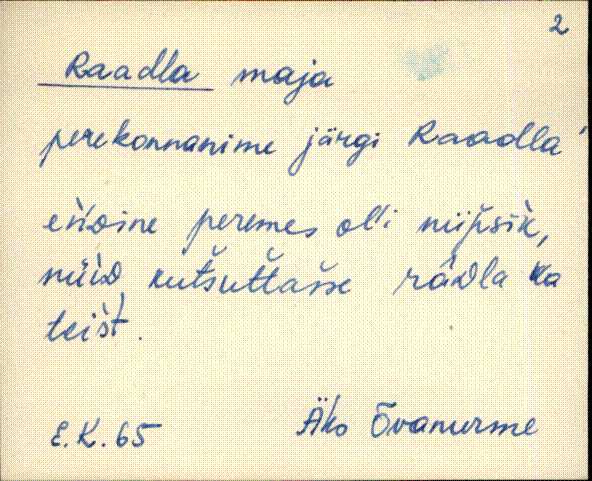 2
Raadla maja
perekonnanime järgi Raadla'
eńdine peremes oĺli niipsik,
nüid kutšuttasse rādla ka
teišt.
E.K. 65 Äko Õvanurme